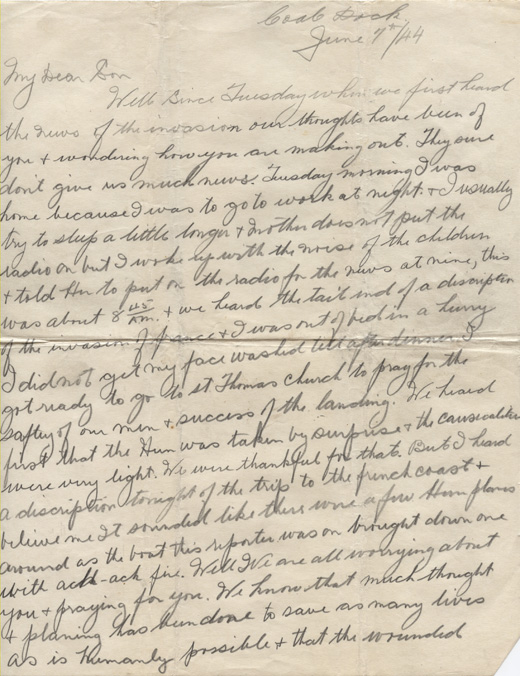 Coal Dock
June 7th/44
My Dear Don
Well Since Tuesday when we first heard
the news of the invasion our thoughts have been of
you + wondering how you are making out. They sure
don't give us much news. Tuesday morning I was
home because I was to go to work at night. + I usually
try to sleep a little longer + Mother does not put the
radio on but I woke up with the noise of the children
+ told Her to put on the radio for the news at nine, this
was about 8 45 AM. + we heard the tail end of a discription
of the invasion of france + I was out of bed in a hurry
I did not get my face washed till after dinner. I
got ready to go to st Thomas church to pray for the
saftey of our men + success of the landing. We heard
first that the Hun was taken by surprise + the causualities
were very light. We were thankful for that. But I heard
a discription tonight of the trip to the french coast +
believe me It sounded like there were a few Hun planes
around as the boat this reporter was on brought down one
with ack-ack fire. Well We are all worrying about
you + praying for you. We know that much thought
+ planing has been done to save as many lives
as is Humanly possible + that the wounded